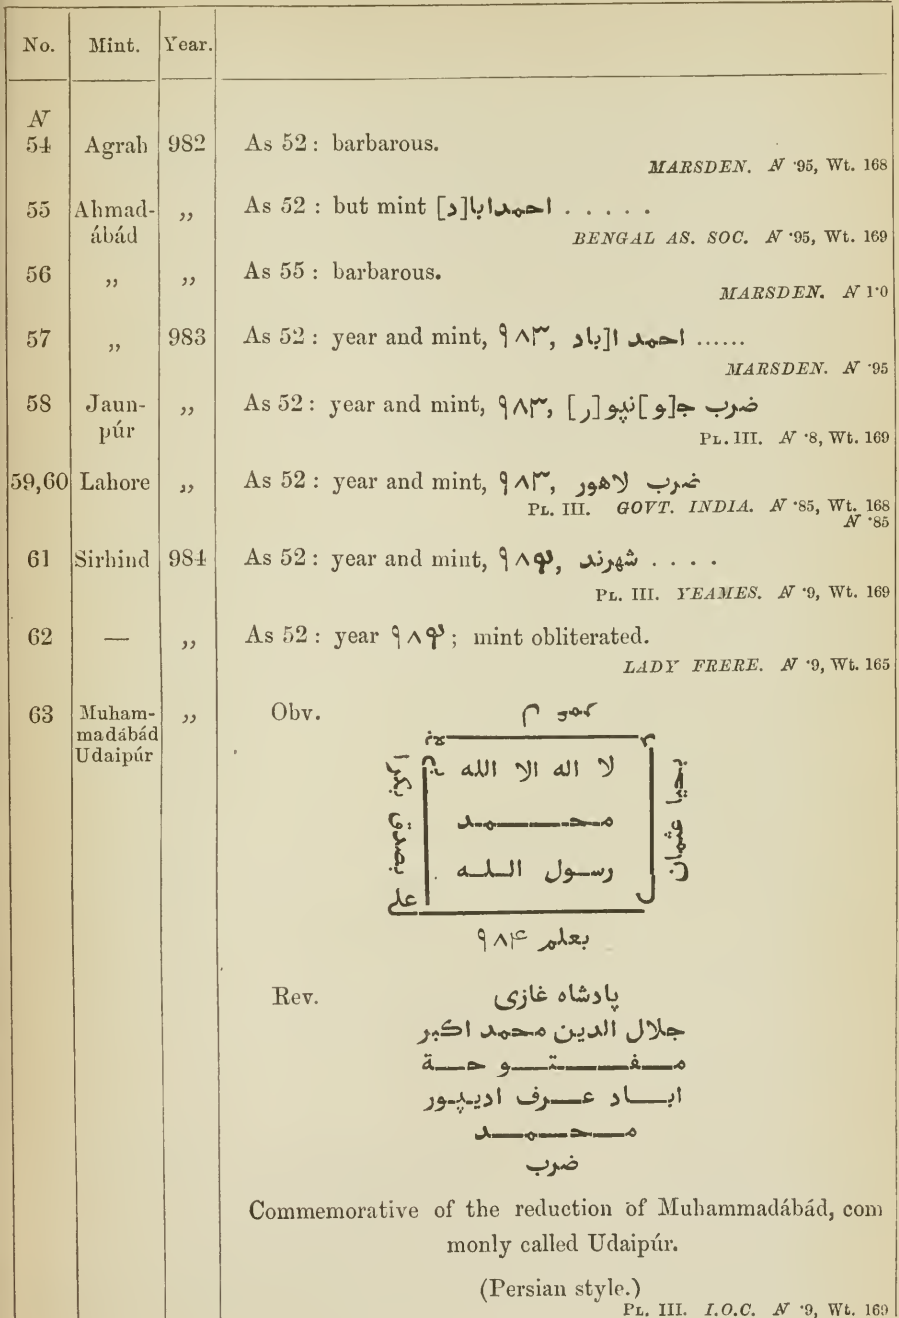 No. Mint. Year.
N
54 Agrah 982 As 52: barbarous.
MARSDEN. N ·95, Wt. 168
55 Ahmad- ,, As 52: but mint احمدابا[د] . . . . .
ábád
BENGAL AS. SOC. N ·95, Wt. 169
56 ,, ,, As 55: barbarous.
MARSDEN. N 1·0
57 ,, 983 As 52: year and mint, ۹۸۳, احمد ا[باد ......
MARSDEN. N ·95
58 Jaun- ,, As 52: year and mint, ۹۸۳, ضرب ج[و]نپو[ر]
púr
PL. III. N ·8, Wt. 169
59,60 Lahore ,, As 52: year and mint, ۹۸۳, ضرب لاهور
PL. III. GOVT. INDIA. N ·85, Wt. 168
N ·85
61 Sirhind 984 As 52: year and mint, ۹۸۴, شهرند . . . .
PL. III. YEAMES. N ·9, Wt. 169
62 — ,, As 52: year ۹۸۴; mint obliterated.
LADY FRERE. N ·9, Wt. 165
63 Muham- ,, Obv.
madábád
Udaipúr
لا اله الا الله
محمد
رسول الله
بصدق
علی
عثمان
بعلم ۹۸۴
Rev. پادشاه غازی
جلال الدين محمد اكبر
مفتوحة
اباد عرف اديپور
محمد
ضرب
Commemorative of the reduction of Muhammadábád, com
monly called Udaipúr.
(Persian style.)
PL. III. I.O.C. N ·9, Wt. 169